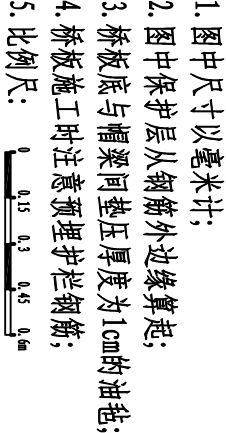 1. 图中尺寸以毫米计;
2. 图中保护层从钢筋外边缘算起;
3. 桥板底与帽梁间垫压厚度为1cm的油毡;
4. 桥板施工时注意预埋护栏钢筋;
5. 比例尺:
0 0.15 0.3 0.45 0.6m